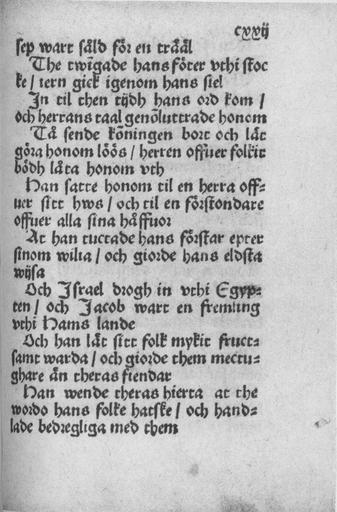 cxxij
sep wart såld för en trääl
The twīgade hans föter vthi stoc
ke / iern gick igenom hans siel
Jn til then tijdh hans ord kom /
och herrans taal genōluttrade honom
Tå sende kōningen bort och lät
göra honom löös / herren offuer folkit
bödh låta honom vth
Han satte honom til en herra off⸗
uer sitt hws / och til en förstondare
offuer alla sina håffuor
At han tuctade hans förstar epter
sinom wilia / och giorde hans eldsta
wijsa
Och Jsrael drogh in vthi Egyp⸗
ten / och Jacob wart en fremling
vthi Hams lande
Och han lät sitt folk mykit fruct⸗
samt warda / och giorde them mectu⸗
ghare än theras fiendar
Han wende theras hierta at the
wordo hans folke hatske / och hand⸗
lade bedregliga med them